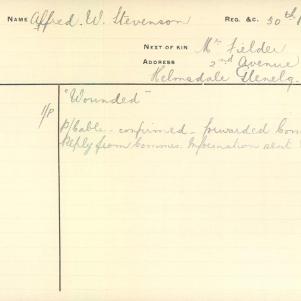 NAME Alfred. W. Stevenson REG. &C. 30th
NEXT OF KIN Mrs Fielder
ADDRESS 2nd Avenue
Helmsdale Glenelg.
"Wounded"
1/P P/Cable - confirmed - forwarded
Reply from Commes. Information sent